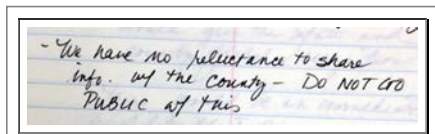 - We have no reluctance to share
info. w/ the county - DO NOT GO
PUBLIC w/ this